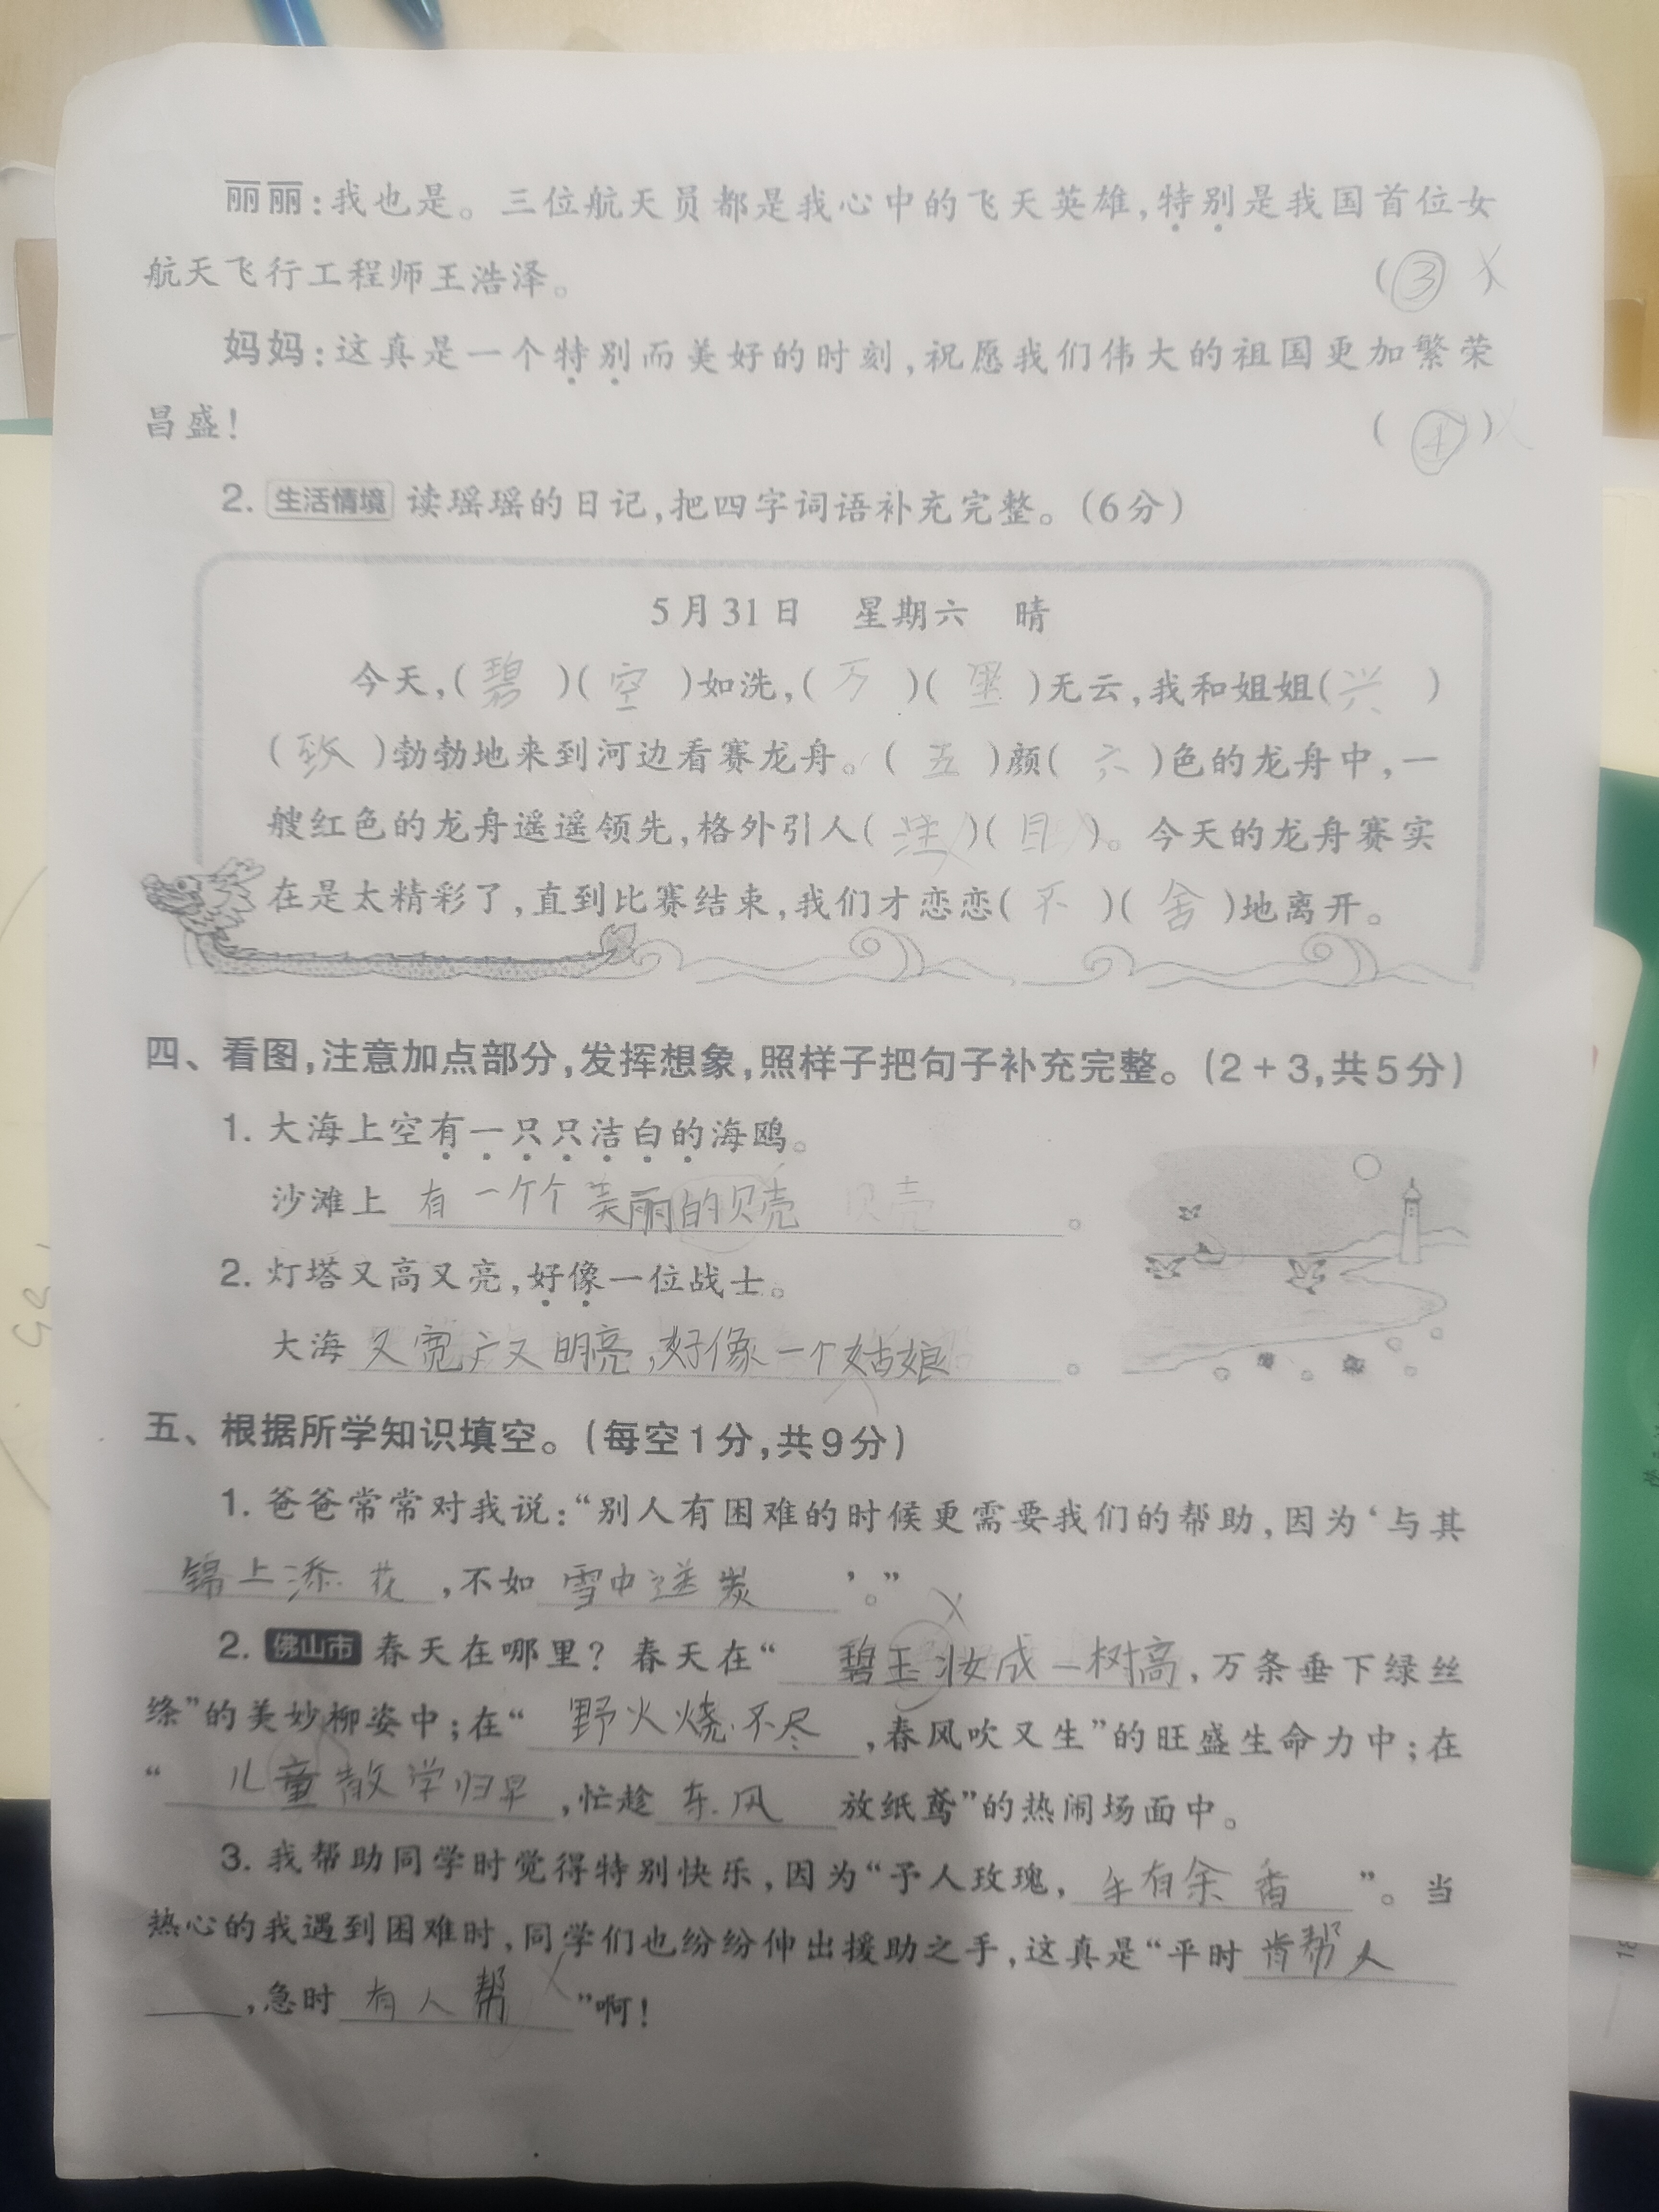 丽丽:我也是。三位航天员都是我心中的飞天英雄,特别是我国首位女
航天飞行工程师王浩泽。 (③)
妈妈:这真是一个特别而美好的时刻,祝愿我们伟大的祖国更加繁荣
昌盛! (④)
2. 生活情境 读瑶瑶的日记,把四字词语补充完整。(6分)
5月31日 星期六 晴
今天,(碧)(空)如洗,(万)(里)无云,我和姐姐(兴)
(致)勃勃地来到河边看赛龙舟。(五)颜(六)色的龙舟中,一
艘红色的龙舟遥遥领先,格外引人(注)(目)。今天的龙舟赛实
在是太精彩了,直到比赛结束,我们才恋恋(不)(舍)地离开。
四、看图,注意加点部分,发挥想象,照样子把句子补充完整。(2+3,共5分)
1. 大海上空有一只只洁白的海鸥。
沙滩上 有一个个美丽的贝壳 贝壳。
2. 灯塔又高又亮,好像一位战士。
大海 又宽广又明亮,好像一个姑娘。
五、根据所学知识填空。(每空1分,共9分)
1. 爸爸常常对我说:“别人有困难的时候更需要我们的帮助,因为‘与其
锦上添花,不如 雪中送炭’。”
2. 佛山市 春天在哪里?春天在“碧玉妆成一树高,万条垂下绿丝
绦”的美妙柳姿中;在“野火烧不尽,春风吹又生”的旺盛生命力中;在
“儿童散学归早,忙趁 东风 放纸鸢”的热闹场面中。
3. 我帮助同学时觉得特别快乐,因为“予人玫瑰,手有余香”。当
热心的我遇到困难时,同学们也纷纷伸出援助之手,这真是“平时 肯帮人
,急时 有人帮”啊!